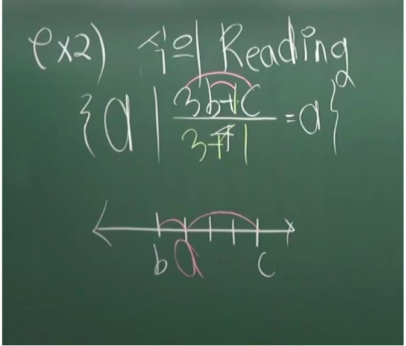 ex2) 수의 Reading
{a | 3b+c / 3+1 = a}
b a c